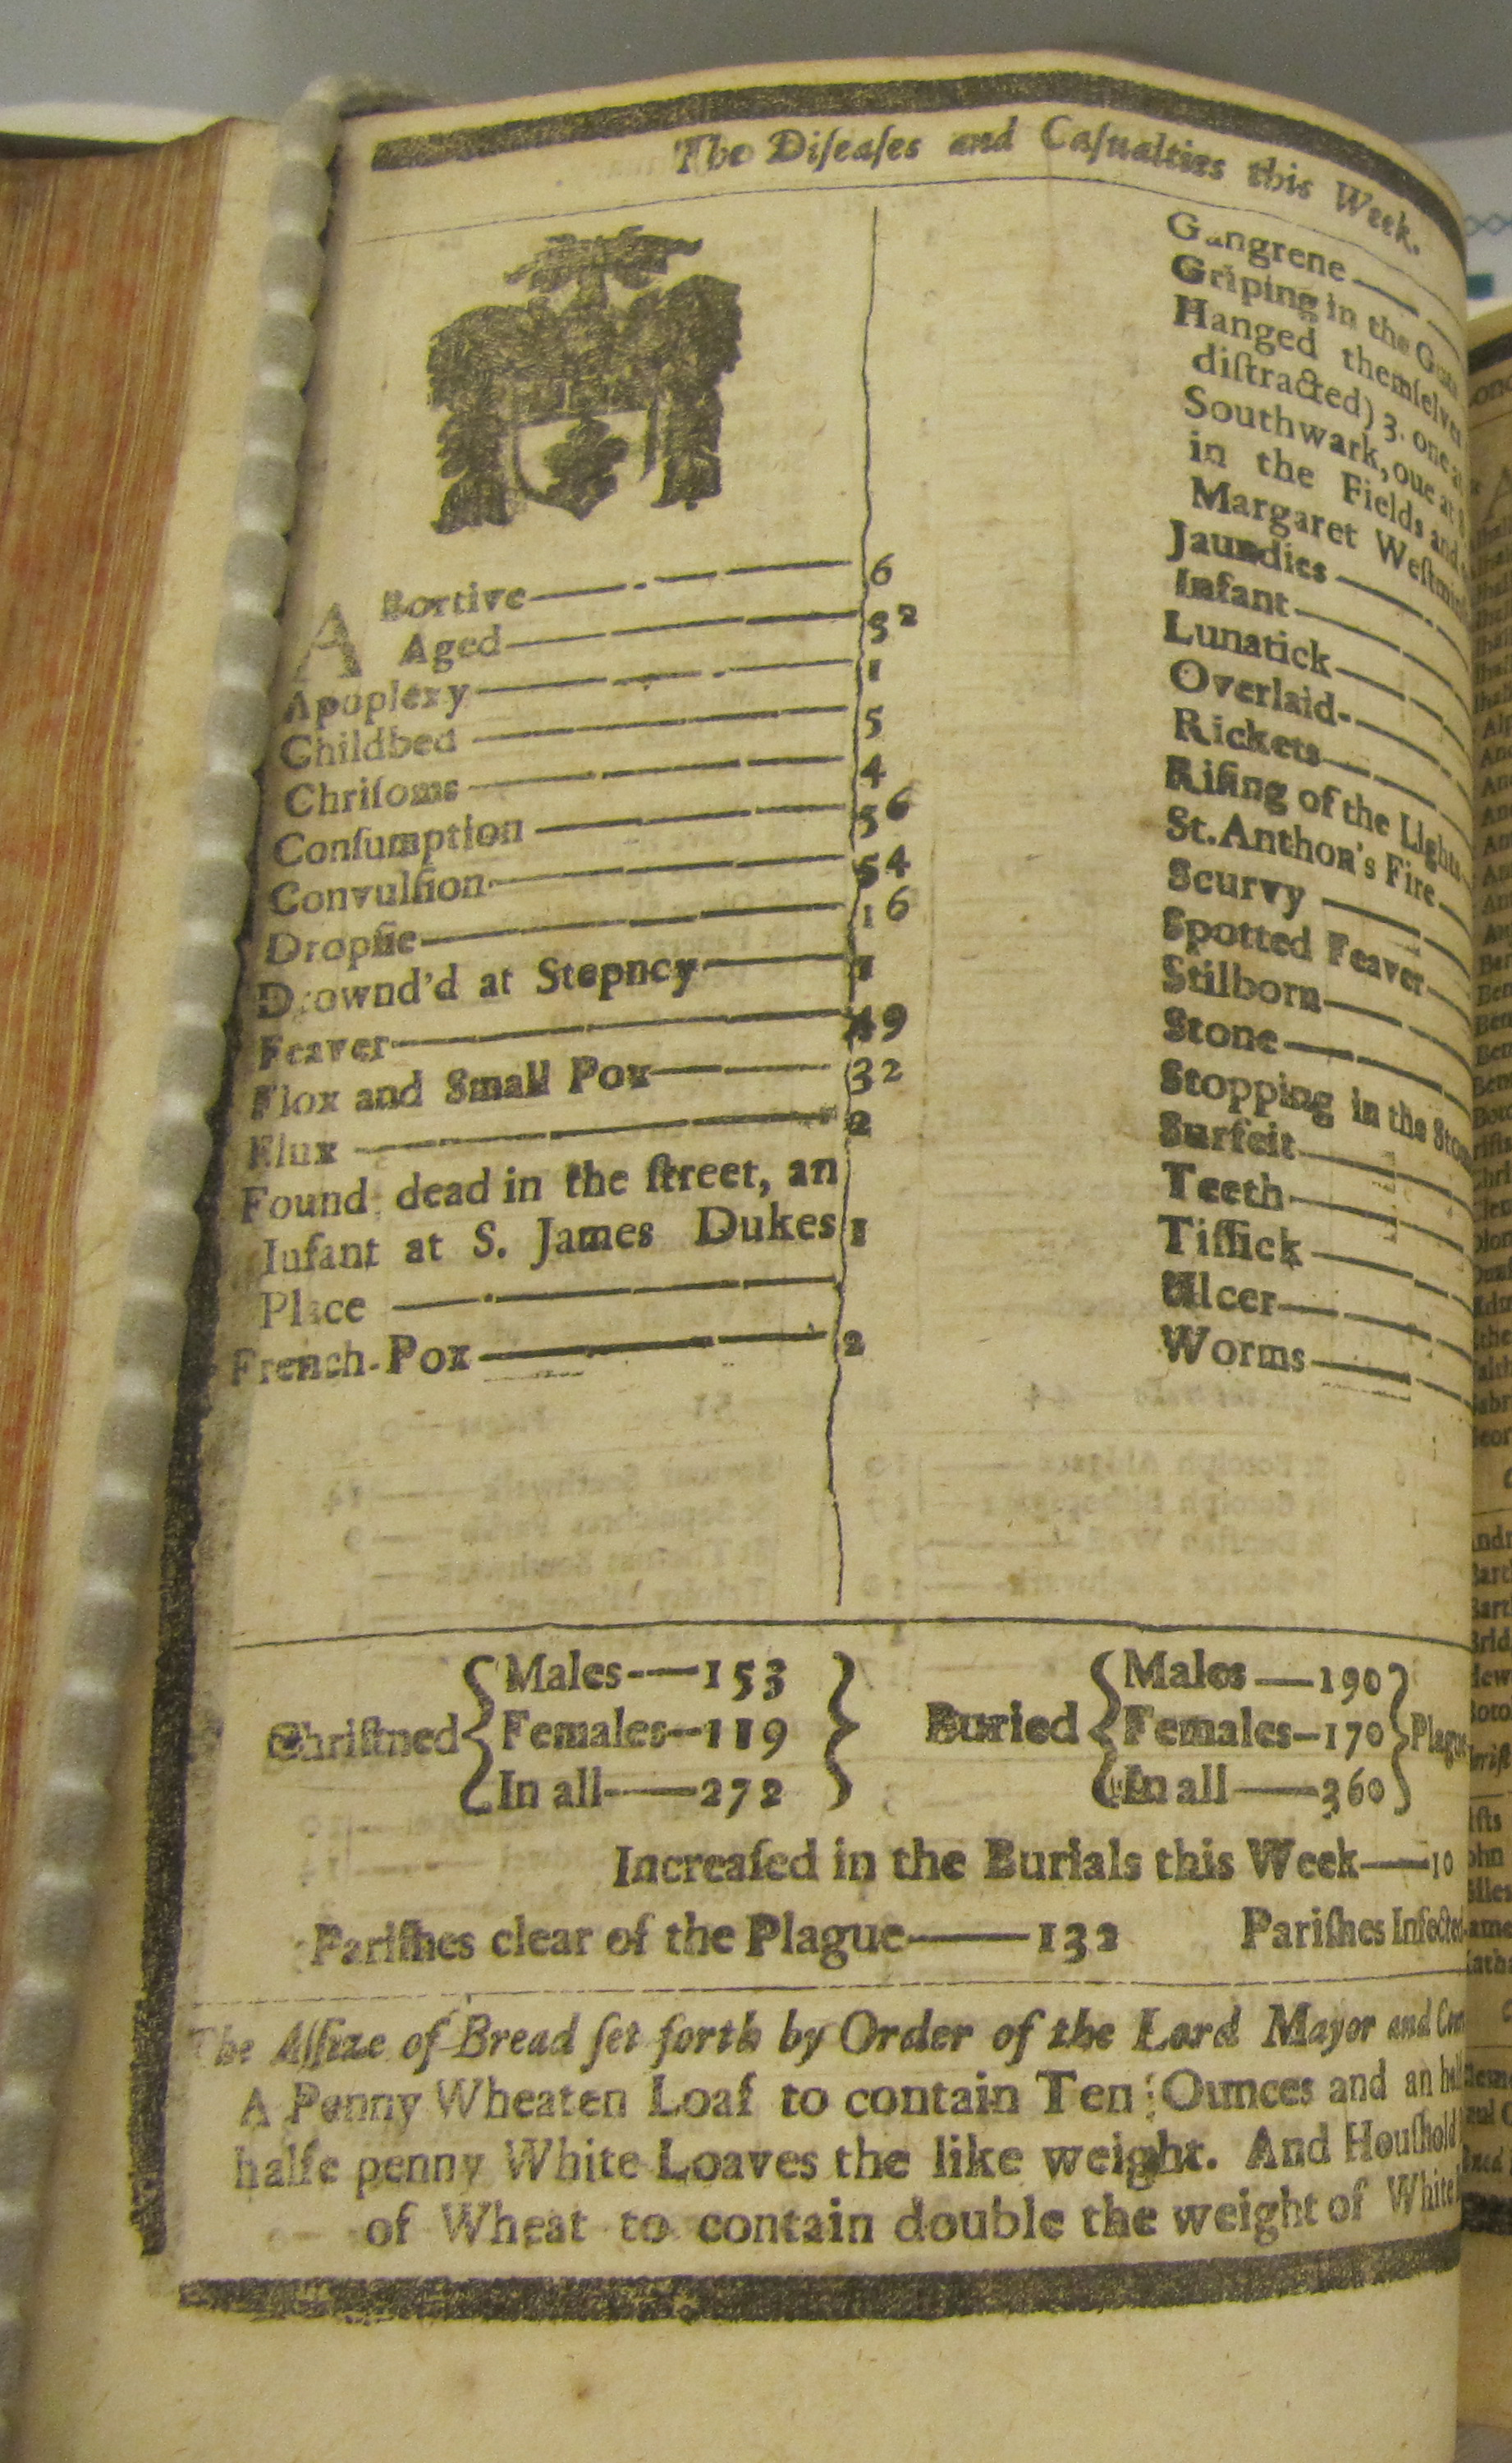 The Diſeaſes and Caſualties this Week.
ABortive 6
Aged 32
Apoplexy 1
Childbed 5
Chriſoms 4
Conſumption 56
Convulſion 54
Dropſie 16
Drownd'd at Stepney 1
Feaver 49
Flox and Small Pox 32
Flux 2
Found dead in the ſtreet, an
Infant at S. James Dukes 1
Place
French-Pox 2
Gangrene
Griping in the Guts
Hanged themſelves
diſtracted) 3. one at
Southwark, one at S
in the Fields and
Margaret Weſtmin
Jaundies
Infant
Lunatick
Overlaid
Rickets
Riſing of the Lights
St. Anthon's Fire
Scurvy
Spotted Feaver
Stilborn
Stone
Stopping in the Stom
Surfeit
Teeth
Tiſſick
Ulcer
Worms
Chriſtned { Males—153 Females—119 In all—272 }
Buried { Males—190 Females—170 In all—360 } Plague
Increaſed in the Burials this Week—10
Pariſhes clear of the Plague—132 Pariſhes Infected
The Aſſize of Bread ſet forth by Order of the Lord Mayor and
A Penny Wheaten Loaf to contain Ten Ounces and an
halfe penny White Loaves the like weight. And Houſhold
of Wheat to contain double the weight of White